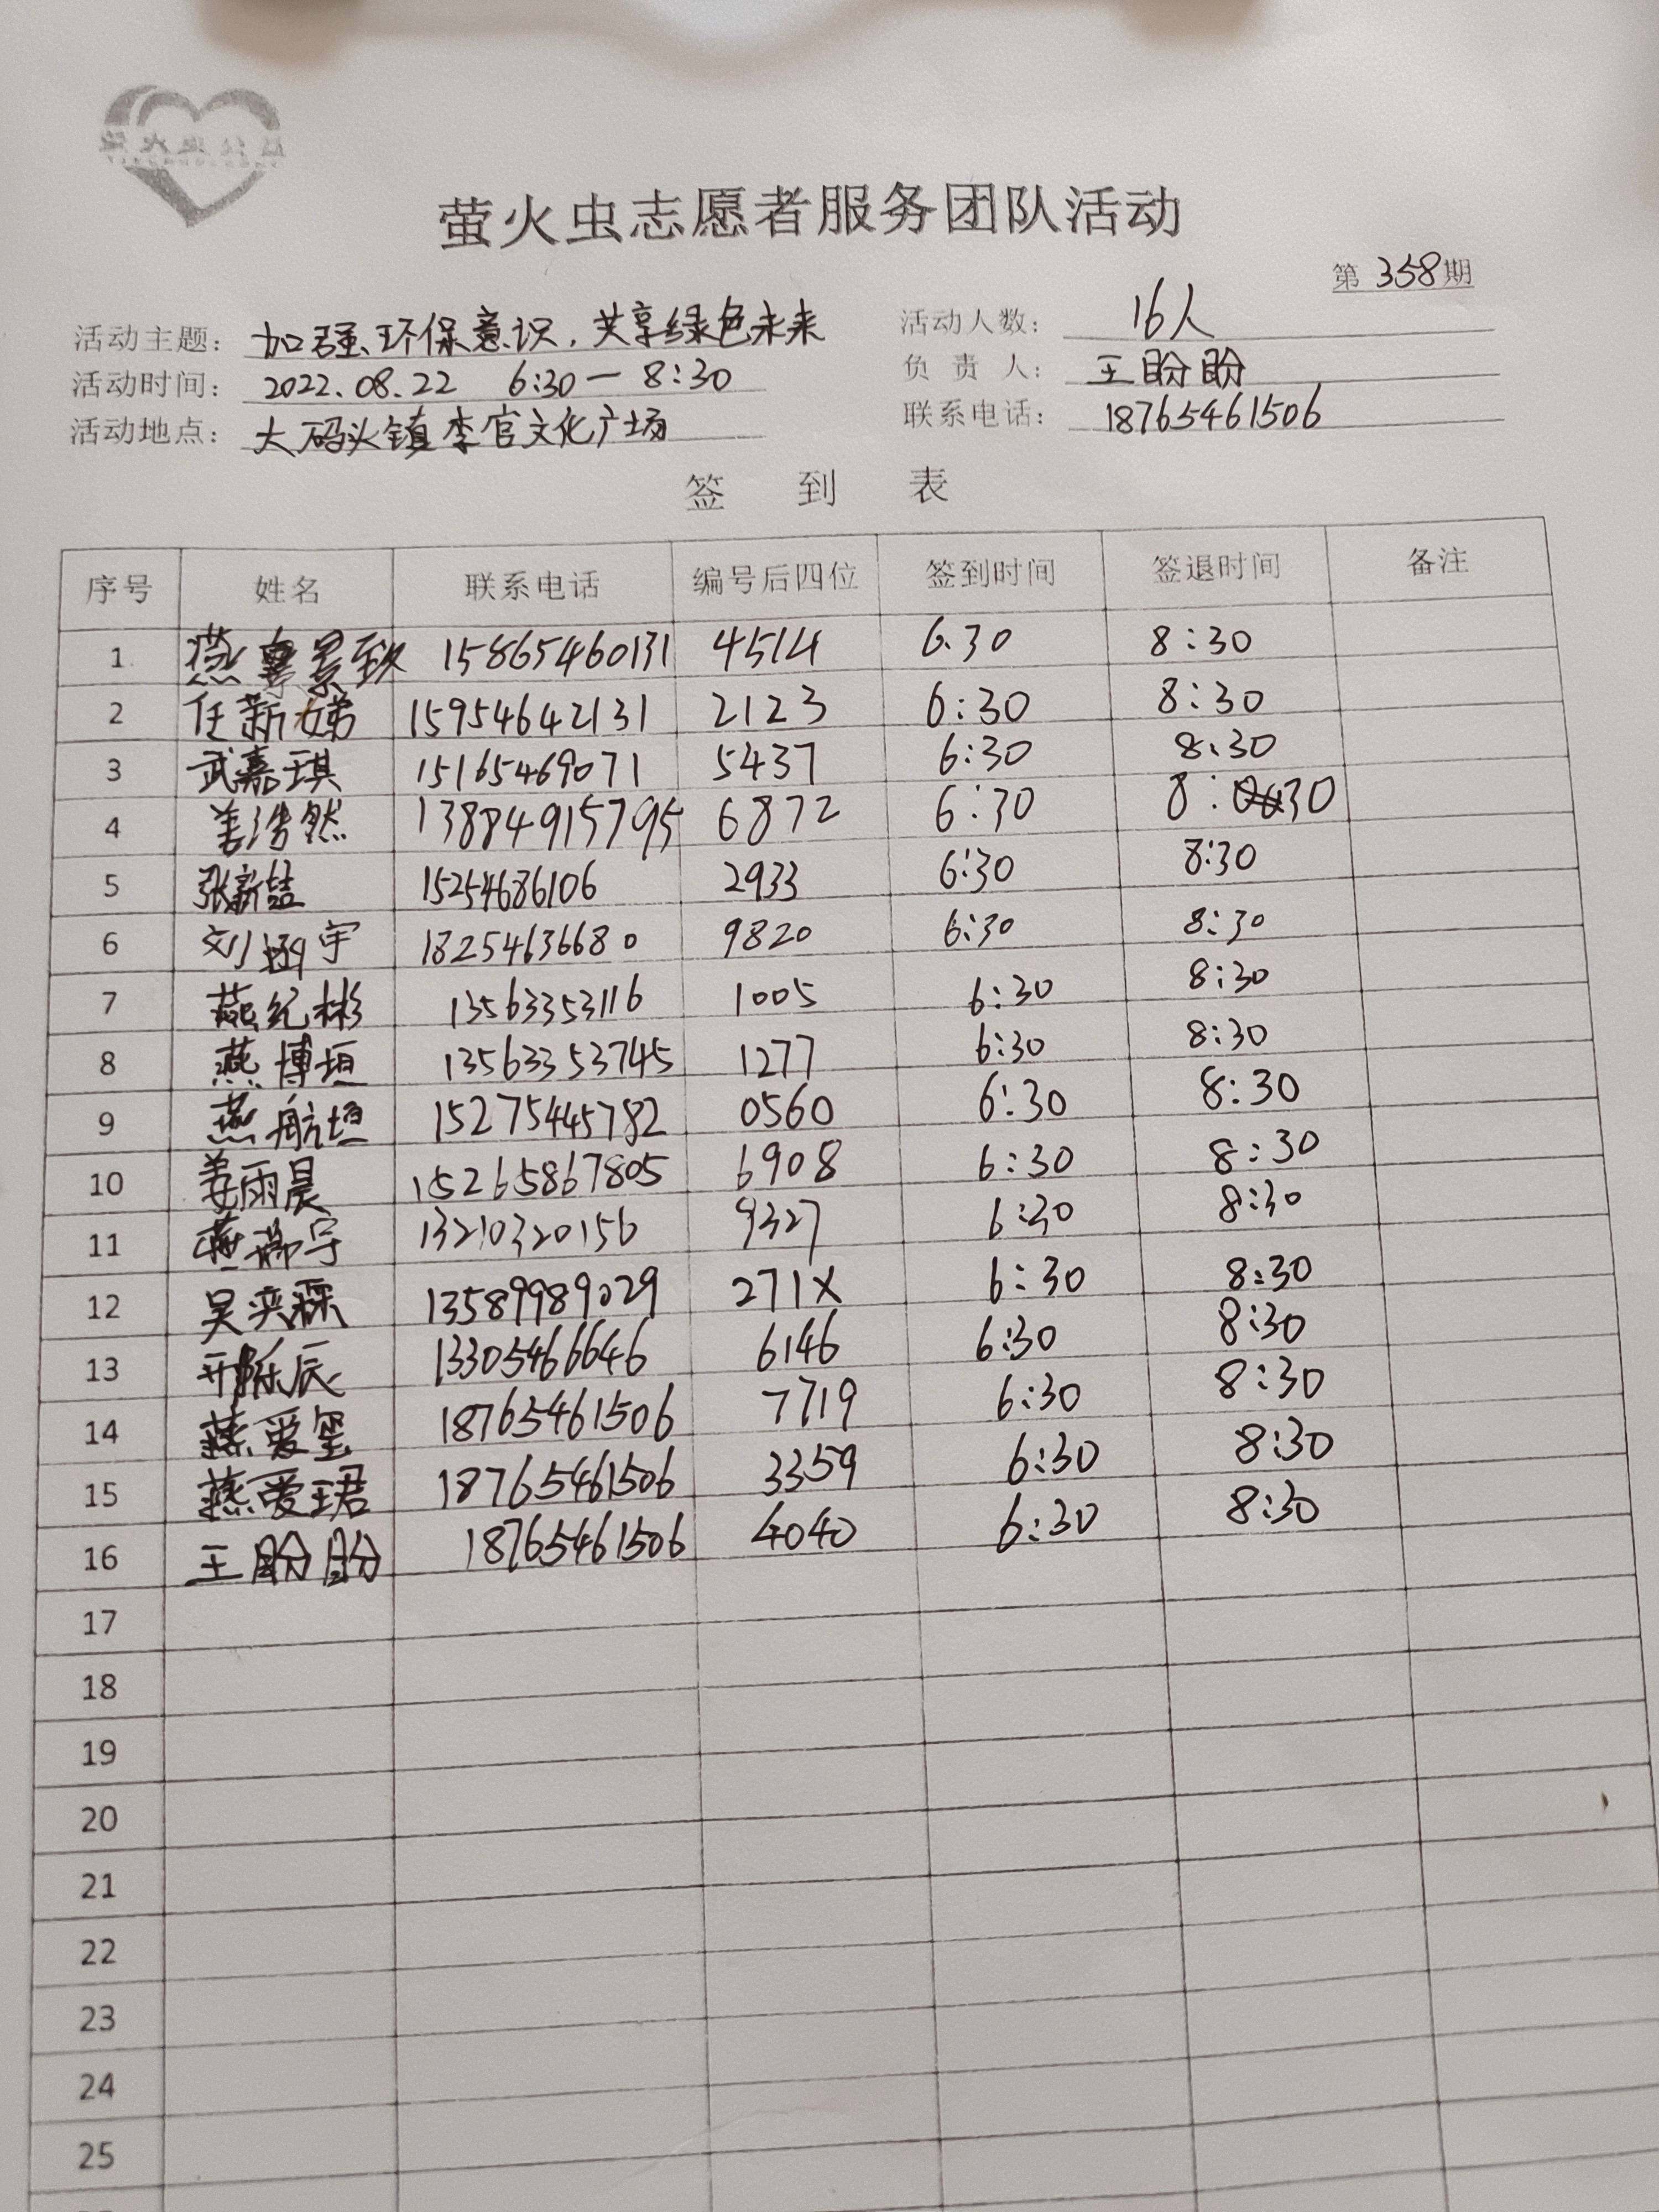 萤火虫公益
萤火虫志愿者服务团队活动
第 358 期
活动主题： 加强环保意识，共享绿色未来 活动人数： 16人
活动时间： 2022.08.22 6:30—8:30 负 责 人： 王盼盼
活动地点： 大码头镇李官文化广场 联系电话： 18765461506
签 到 表
序号 姓名 联系电话 编号后四位 签到时间 签退时间 备注
1 燕景 15865460131 4514 6.30 8:30
2 任新娣 15954642131 2123 6:30 8:30
3 武嘉琪 15165469071 5437 6:30 8:30
4 姜浩然 138849157795 6872 6:30 8:30
5 张新喆 15254686106 2933 6:30 8:30
6 刘涵宇 18254636680 9820 6:30 8:30
7 燕纪彬 13563353116 1005 6:30 8:30
8 燕博垣 13563353745 1277 6:30 8:30
9 燕航垣 15275445782 0560 6:30 8:30
10 姜雨晨 15265867805 6908 6:30 8:30
11 燕宇 13210320156 9327 6:30 8:30
12 吴奕霖 13589989029 271X 6:30 8:30
13 邢辰 13305466646 6146 6:30 8:30
14 燕爱玺 18765461506 7719 6:30 8:30
15 燕爱珺 18765461506 3359 6:30 8:30
16 王盼盼 18765461506 4040 6:30 8:30
17
18
19
20
21
22
23
24
25